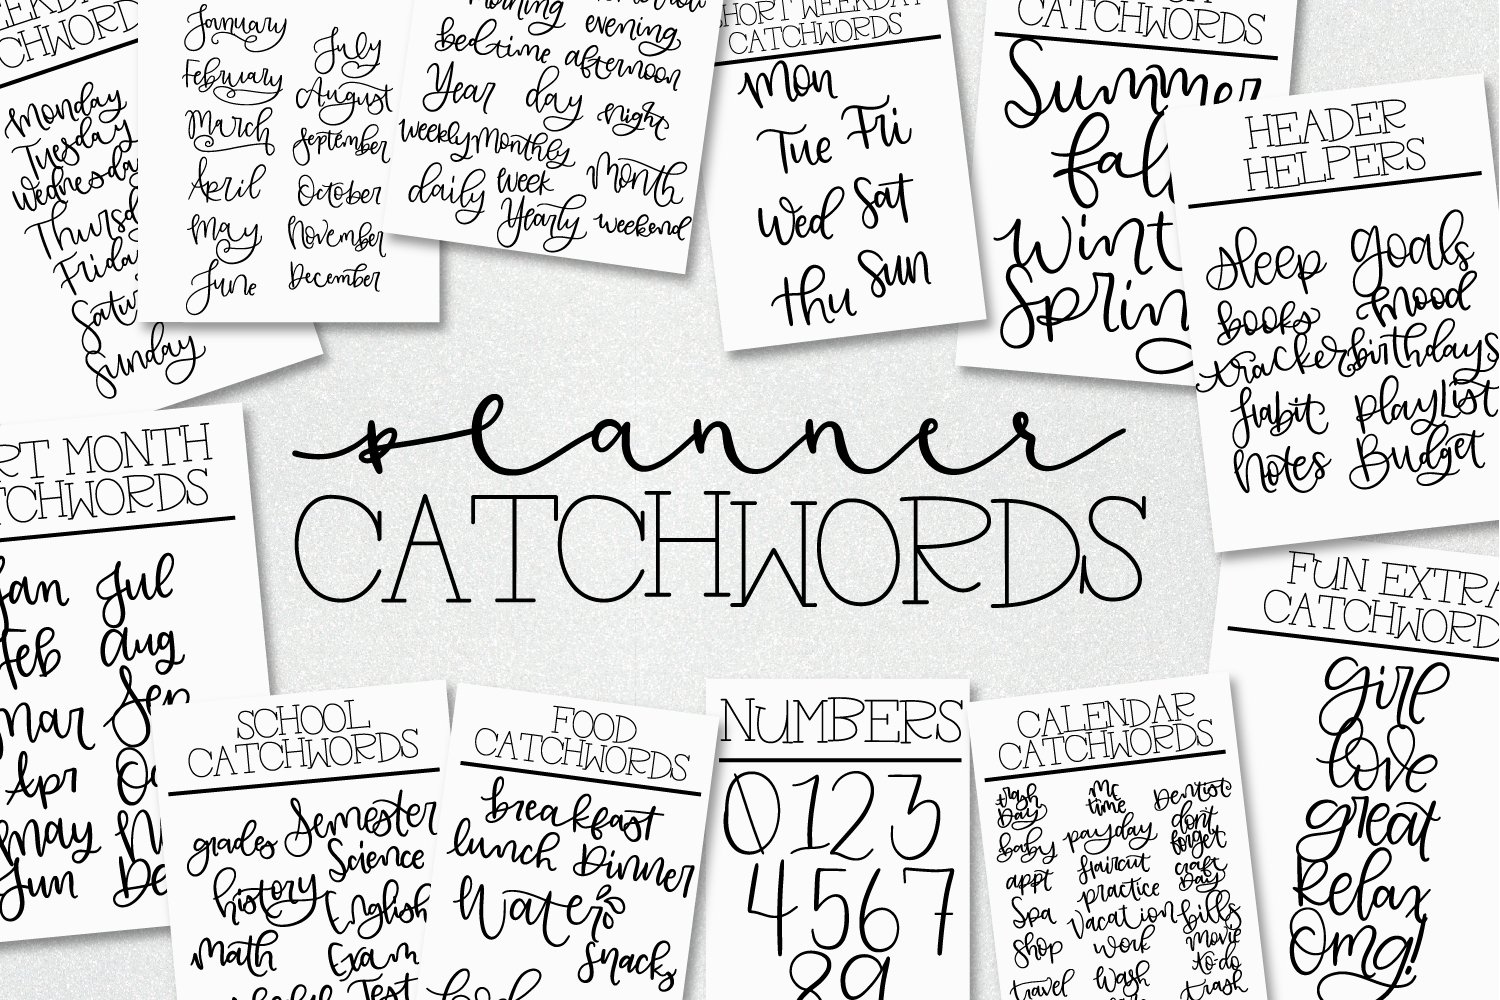 CATCHWORDS
Monday
Tuesday
Friday
Sunday
January
February
March
April
May
June
July
August
September
October
November
December
evening
bedtime
afternoon
Year
day
night
weekly
Monthly
Month
daily
week
Yearly
weekend
SHORT WEEKDAY
CATCHWORDS
Mon
Tue
Fri
Wed
Sat
Thu
Sun
CATCHWORDS
Summer
fall
Wint
Sprin
HEADER
HELPERS
sleep
goals
books
mood
tracker
birthdays
habit
playlist
Notes
Budget
planner
CATCHWORDS
RT MONTH
TCHWORDS
Jan
Jul
Feb
Aug
Mar
Sep
Apr
May
Jun
De
SCHOOL
CATCHWORDS
grades
Semester
Science
history
English
Math
Exam
Test
FOOD
CATCHWORDS
breakfast
lunch
Dinner
Water
Snacks
food
NUMBERS
0123
4567
89
CALENDAR
CATCHWORDS
trash
Day
me
time
Dentist
baby
payday
don't
forget
appt
haircut
craft
Day
practice
Spa
vacation
bills
Shop
work
movie
to-do
travel
Wash
trash
FUN EXTRA
CATCHWORDS
girl
love
great
Relax
Omg!